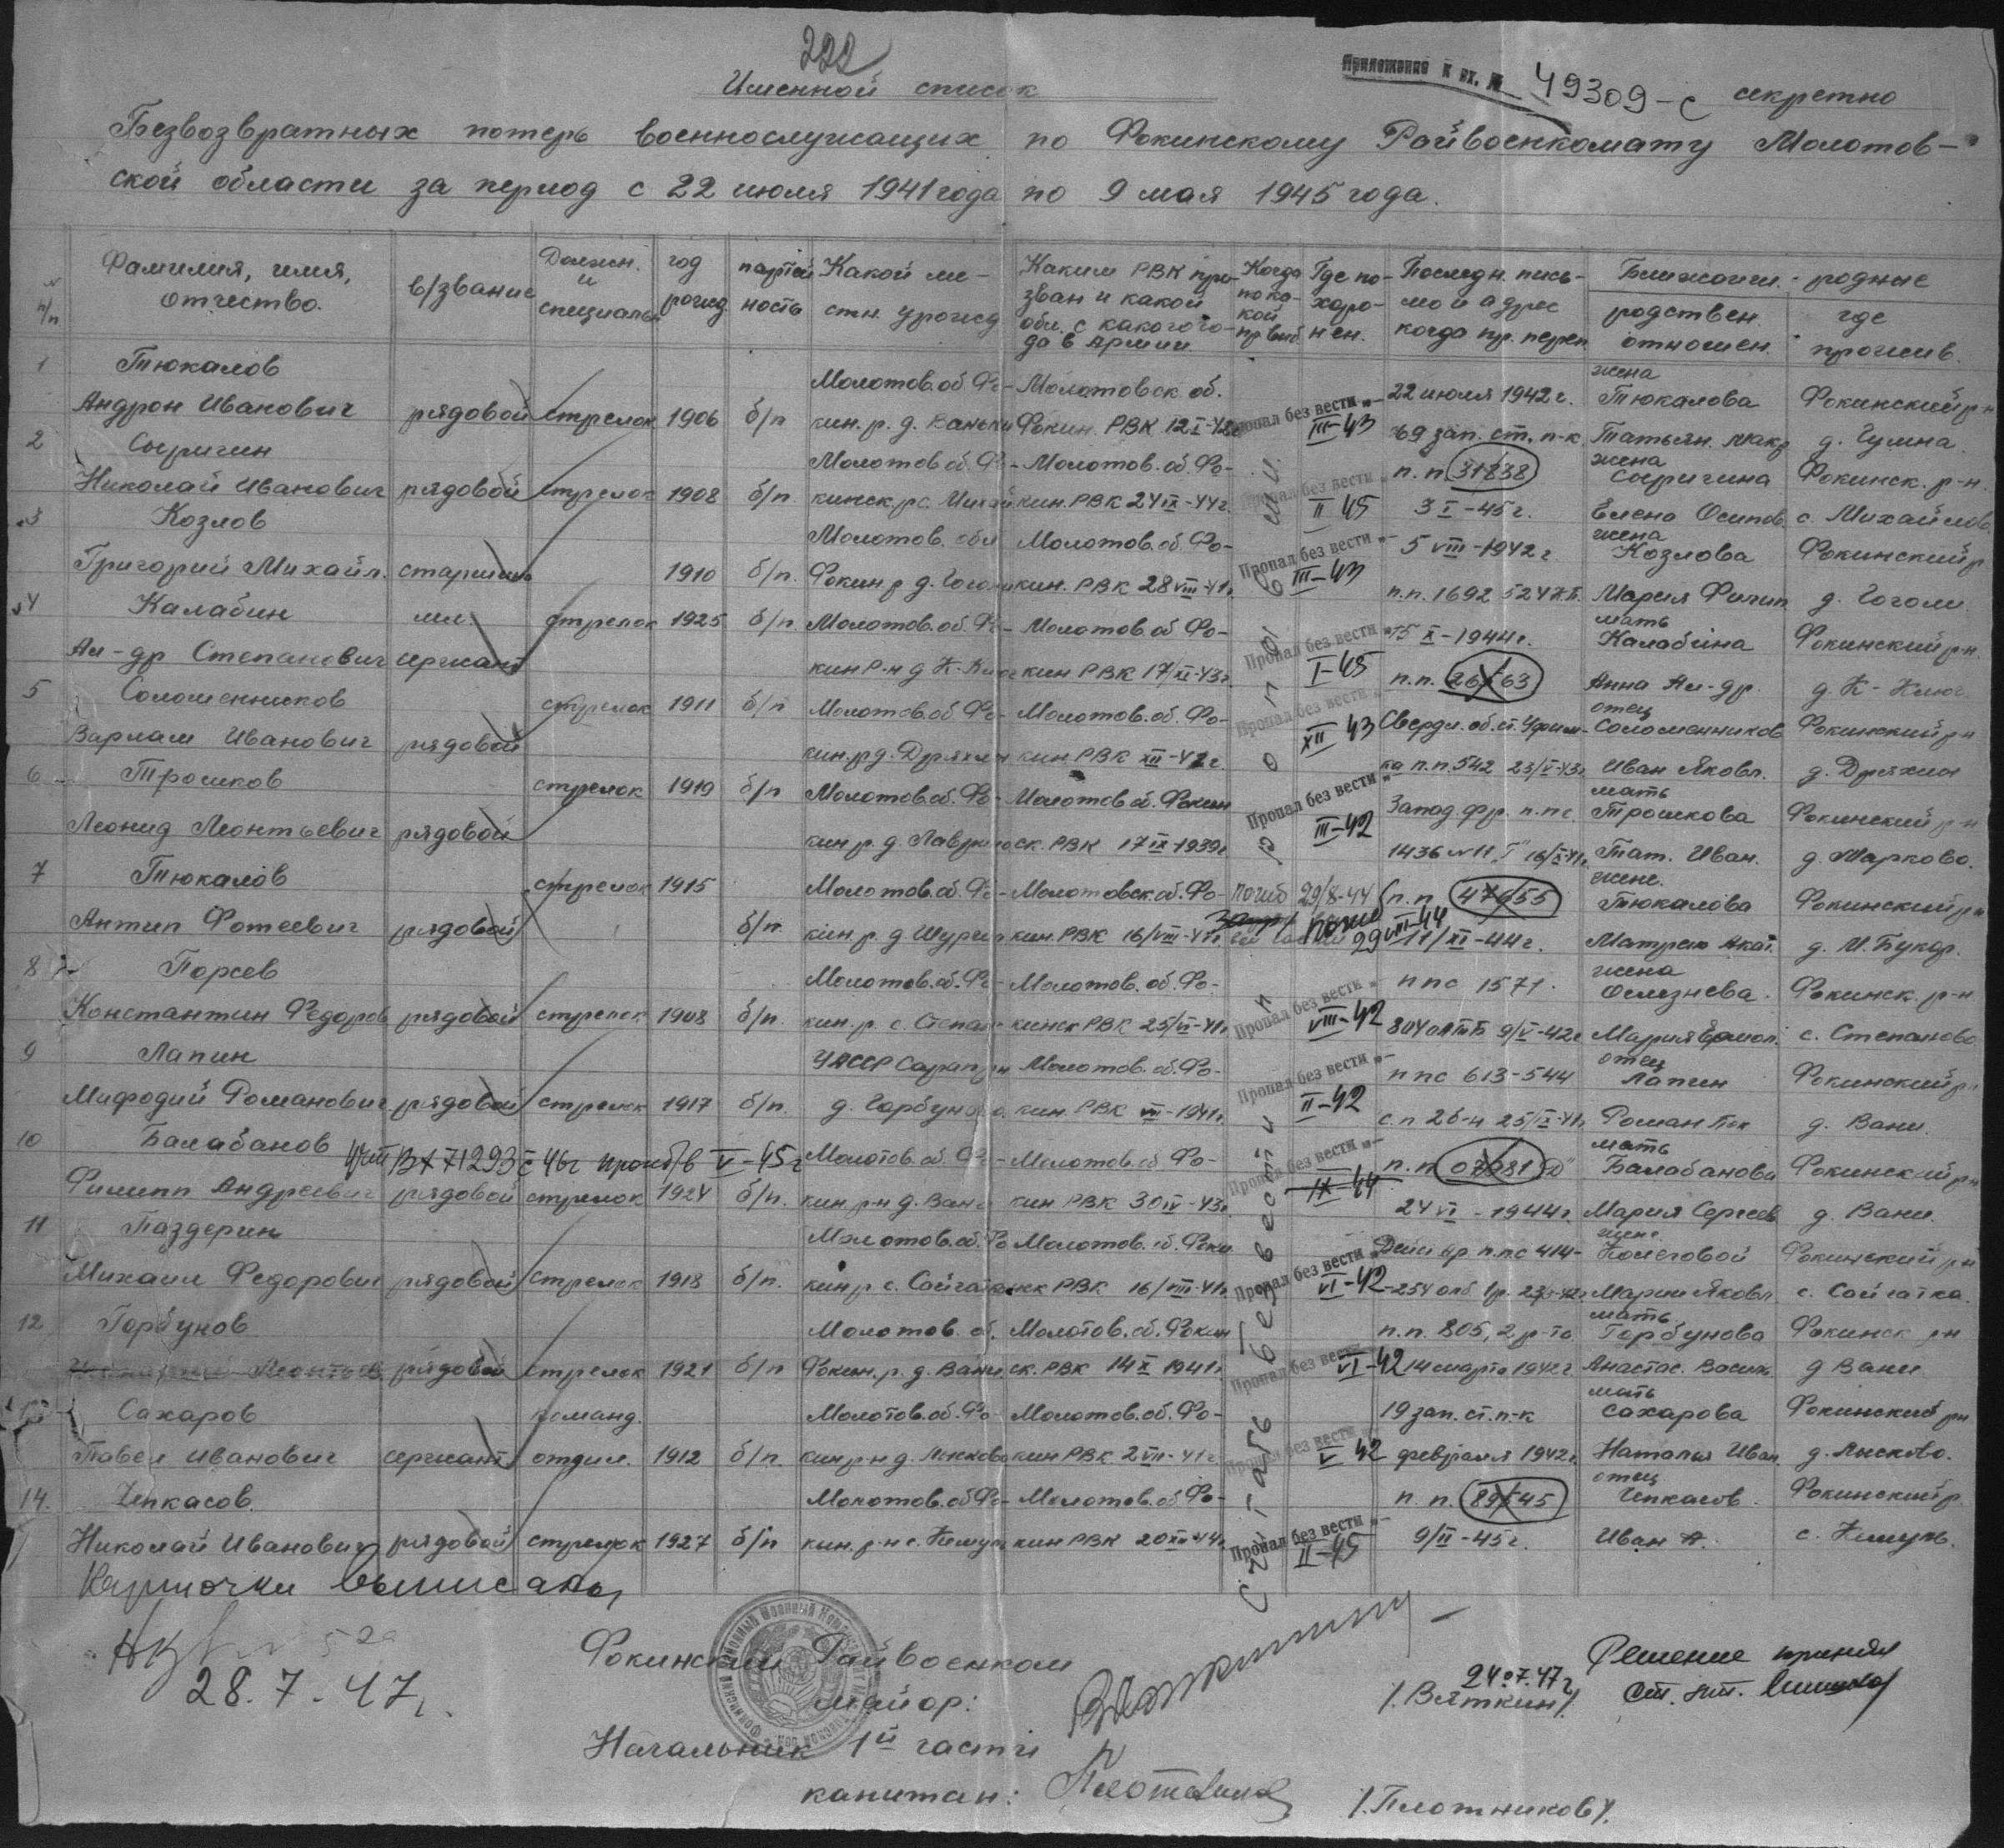 222
Именной список
Приложение к вх. № 49309-с секретно
Безвозвратных потерь военнослужащих по Фокинскому Райвоенкомату Молотов-
ской области за период с 22 июля 1941 года по 9 мая 1945 года.
№ п/п
Фамилия, имя, отчество.
в/звание
Должн. и специальн
год рожд.
партий ность
Какой ме- стн. урожед
Каким РВК при- зван и какой обл. с какого го- да в Армии
Когда по ка- кой пр выб
Где по- харо- нен.
Последн. пись- мо и адрес когда пр. переп
Ближайш. родные
родствен. отношен.
где прожив.
1 Тюкалов Молотов.об Фо- Молотовск об. 22 июля 1942 г. жена Тюкалова Фокинский р-н
Андрон Иванович рядовой стрелок 1906 б/п кин. р. д. Ваньки Фокин. РВК 12 I-42 Пропал без вести III-43 69 зап. ст. п-к Татьян. Макр д. Гулина
2 Сыригин Молотов об. Фо- Молотов. об. Фо- п. п 31838 жена Сыригина Фокинск. р-н.
Николай Иванович рядовой стрелок 1908 б/п. кинск. р с. кин. РВК 24 IX-44 г Пропал без вести II 45 3 I-45 г. Елена Осипов. с. Михайлов.
3 Козлов Молотов. обл Молотов. об. Фо- 5 VIII-1942 г жена Козлова Фокинский р
Григорий Михайл. старшина 1910 б/п. Фокин р д. Гоголи кин. РВК 28 VIII-41 г. Пропал без вести III-43 п.п. 1692 524 Мария Филип д. Гоголи.
4 Калабин мл. стрелок 1925 б/п Молотов. об. Фо- Молотов. об Фо- 15 X-1944 г. мать Калабина Фокинский р-н.
Ал-др Степанович сержант кин р-н д К-Ключ кин РВК 17/XI-43 г. Пропал без вести I-45 п.п. 26763 Анна Ал-др. д. К-Ключ
5 Соломенников стрелок 1911 б/п Молотов. об Фо- Молотов. об. Фо- Свердл. об. ст. Уфим- отец Соломенников Фокинский р-н
Варлам Иванович рядовой кин. р д. Дряхли кин РВК XII-42 г. Пропал без вести XII 43 ка п.п. 542 23/V-43 г Иван Яковл. д. Дряхли
6 Трошков стрелок 1919 б/п Молотов. об. Фо- Молотов об. Фокин Запад. фр. п. п с. мать Трошкова Фокинский р-н
Леонид Леонтьевич рядовой кин р. д. ск. РВК 17 IX 1939 г Пропал без вести III-42 1436 16/X-41 г. Тат. Иван. д. Марково.
7 Тюкалов стрелок 1915 Молотов. об. Фо- Молотовск об. Фо- погиб 29/8-44 п. п 47655 жена. Тюкалова Фокинский р-н
Антип Фотеевич рядовой б/п. кин. р. д кин. РВК 16/VIII-41 г погиб 29 VIII-44 11/XI-44 г. д. М. Букор.
8 Порсев Молотов. об. Фо- Молотов. об. Фо- п п с 1571. жена Фокинск. р-н
Константин Федоров рядовой стрелок 1908 б/п. кин. р. с. Степан кинск РВК 25/VI-41 г Пропал без вести VIII-42 804 9/V-42 г Мария Ермол. с. Степаново
9 Лапин УАССР Сарап. р-н Молотов. об. Фо- п п с 613-544 отец Лапин Фокинский р-
Мифодий Романович рядовой стрелок 1917 б/п. д. Горбуново. кин. РВК VII-1941 г. Пропал без вести II-42 с. п 26-н 25/IX-41 г. Роман д. Вани.
10 Балабанов 71293 с 46 г V-45 г Молотов. об. Фо- Молотов. об Фо- п. п 03981 мать Балабанова Фокинский р-н
Филипп Андреевич рядовой стрелок 1924 б/п. кин. р-н д. Вани кин РВК 30 IV-43 г. Пропал без вести IX-44 24 VI-1944 г. Мария Сергеев д. Вани.
11 Паздерин Молотов. об. Фо Молотов. об. Фоки п. п с 414- жене Колеговой Фокинский р-н
Михаил Федорович рядовой стрелок 1918 б/п. кин р с. Сайгатка РВК 16/VIII-41 г. Пропал без вести VI-42 -254 Марии Яковл. с. Сайгатка.
12 Горбунов Молотов. об. Молотов. об. Фокин п. п. 805, 2 р-та мать Горбунова Фокинск р-н
Леонтьев. рядовой стрелок 1921 б/п Фокин. р. д. Вани ск. РВК 14 X 1941 г. Пропал без вести VI-42 14 марта 1942 г Анастас. Васил. д Вани.
13 Сахаров команд. Молотов. об. Фо- Молотов. об. Фо- 19 зап. ст. п-к мать Сахарова Фокинский р-н
Павел Иванович сержант отдел. 1912 б/п. кин р-н д. Лысково кин РВК 2 VII-41 г. Пропал без вести V 42 февраля 1942 г. Наталья Иван. д. Лысково.
14. Чепкасов Молотов. об Фо- Молотов. об Фо- п. п. 89545 отец Чепкасов. Фокинский р.
Николай Иванович рядовой стрелок 1927 б/п кин. р-н с. Кемуль кин РВК 20 XII 44 г. Пропал без вести II-45 9/II-45 г. Иван А. с. Кемуль.
Считать без вести пропавшими
Карточки выписаны
28.7.47 г.
Фокинский Райвоенком
майор: Вяткин
/. Вяткин /.
Начальник 1й части
капитан: Плотников
/. Плотников /.
24.07.47 г
Решение принял
ст. лит.